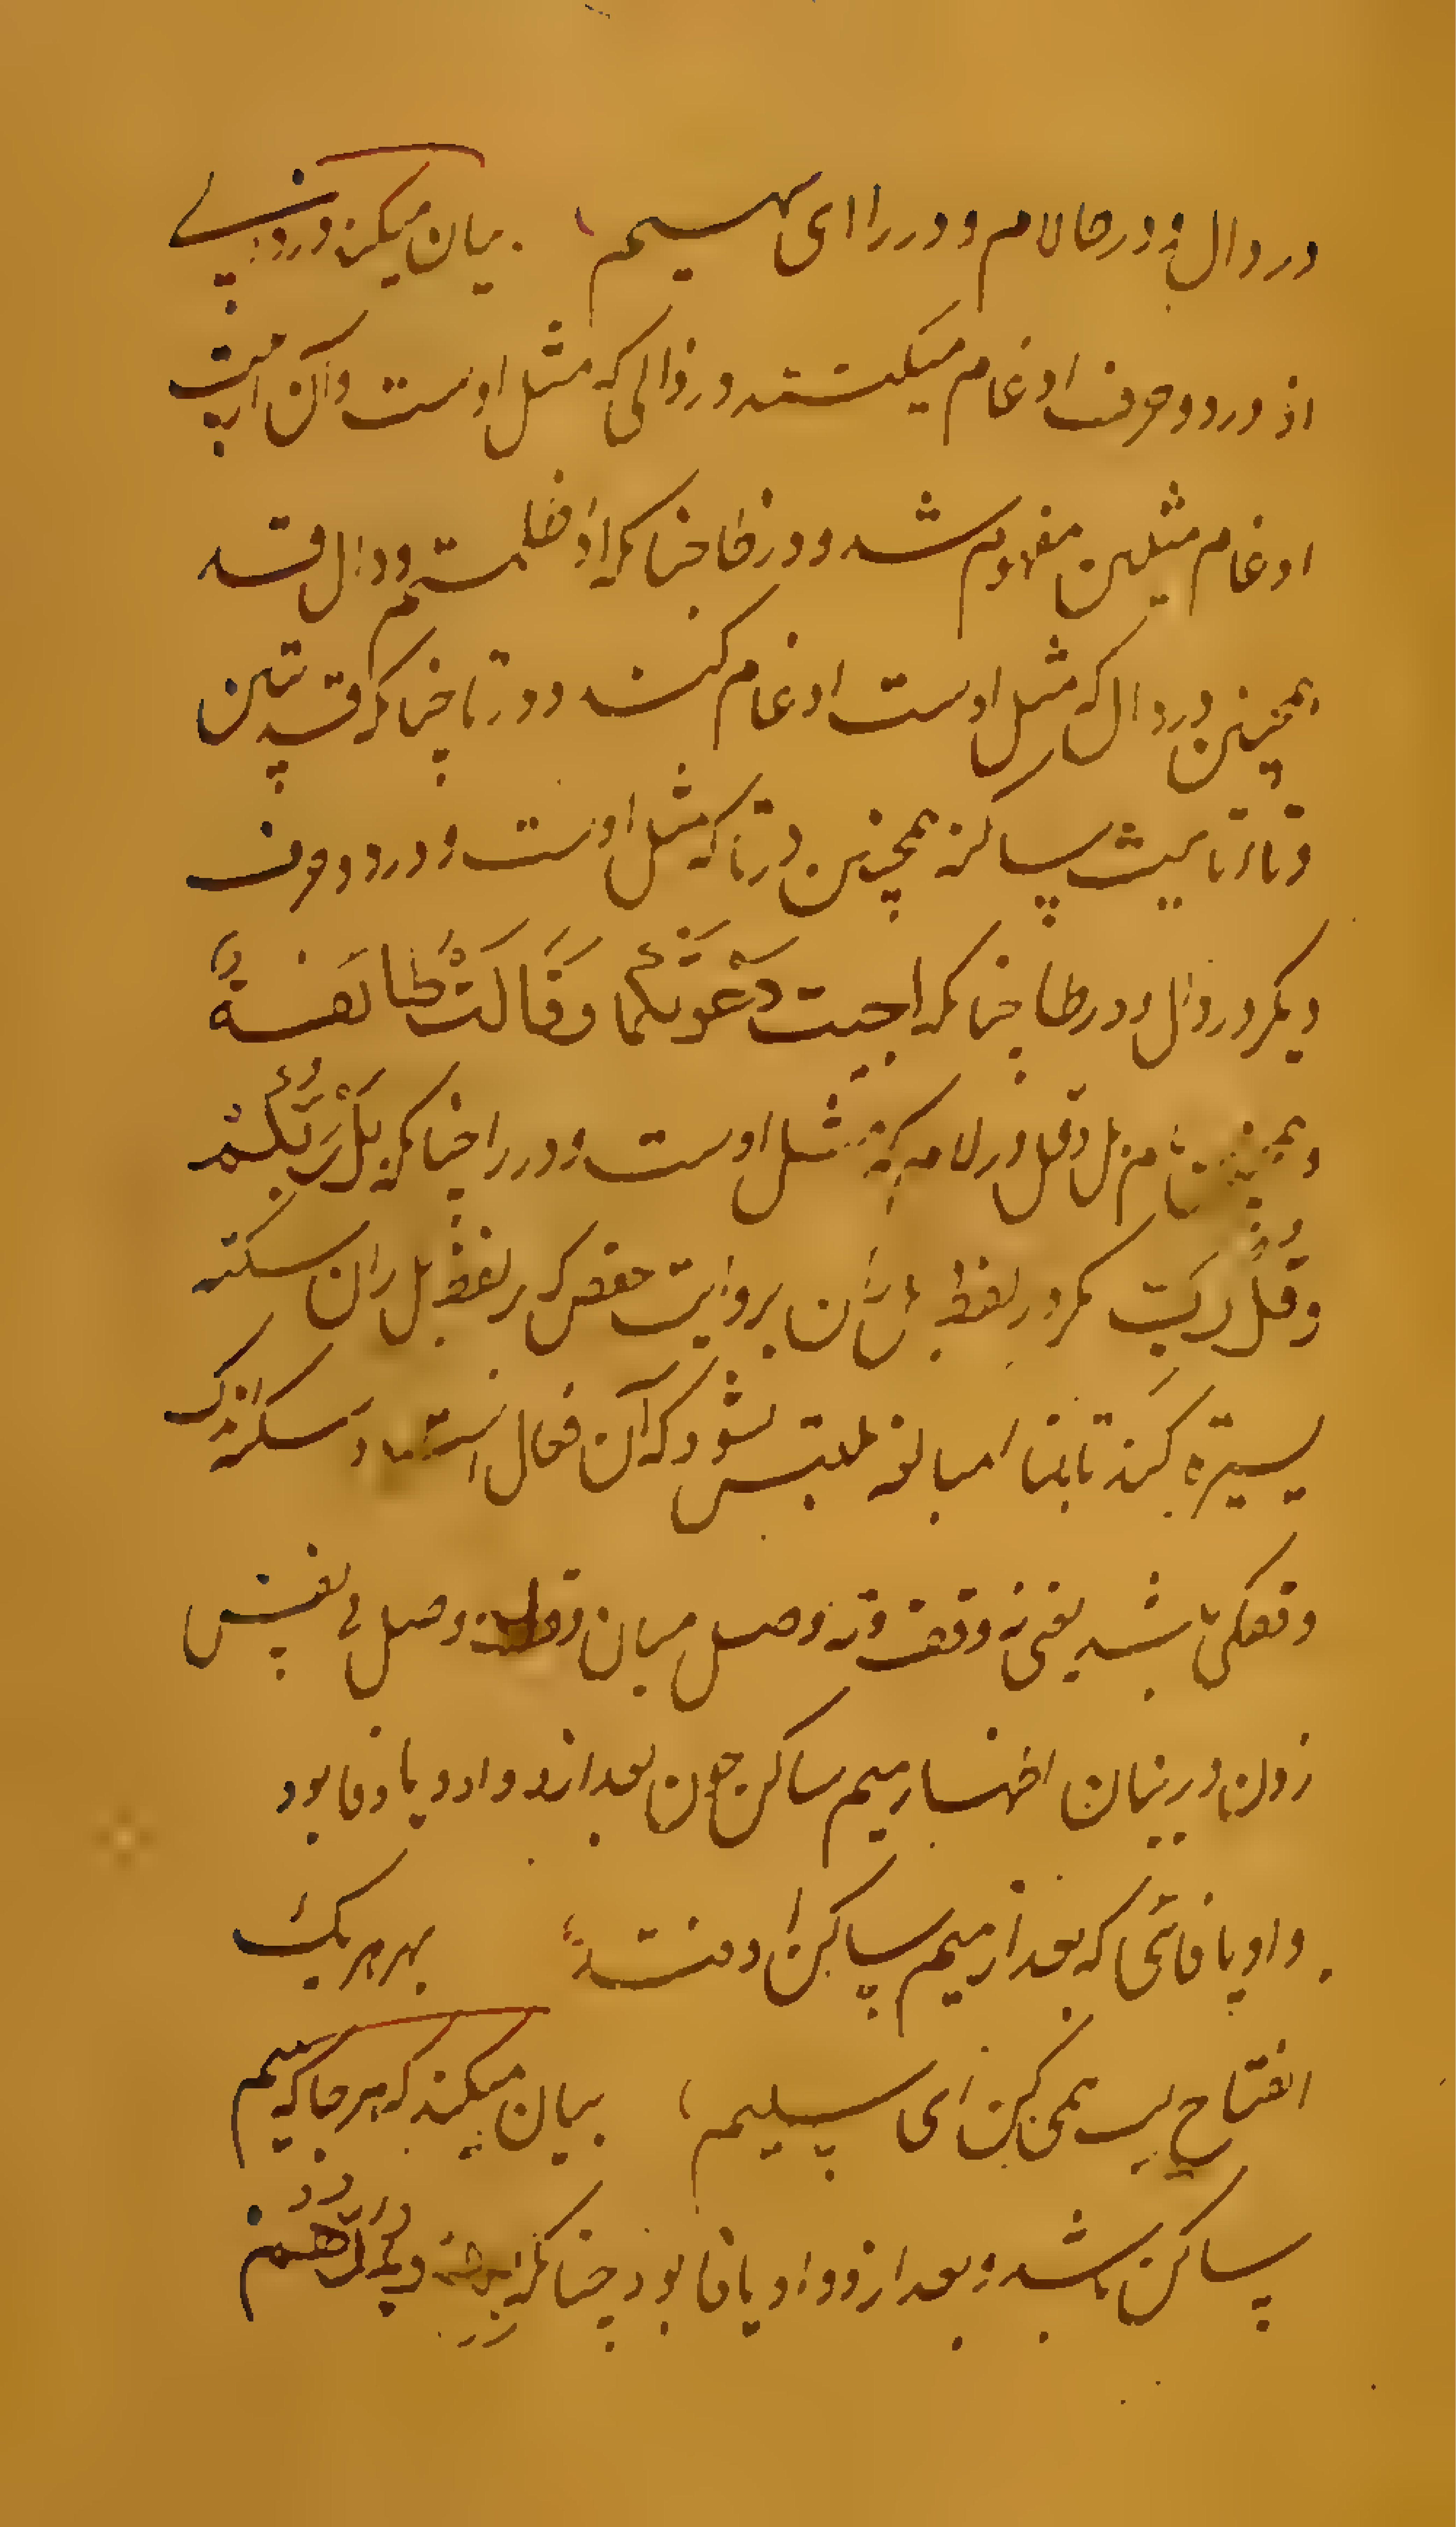 در دال و در طا لام و در را ای سهیم بیان میکند در دو بیتی
اذ در دو حرف ادغام میکنند در ذالی که مثل اوست و آن از بیت
ادغام مثلین مفهوم شد و در ظا چنانکه اذ ظلمتم و دال قد
همچنین در دال که مثل اوست ادغام کنند و در تا چنانکه قد تبین
و تاء تانیث ساکنه همچنین در تا که مثل اوست و در دو حرف
دیگر در دال و در طا چنانکه اجیبت دَعْوَتُکُمَا وَقَالَتْ طَائِفَةٌ
و همچنین لام بل و قل در لام که مثل اوست و در را چنانکه بَلْ رَبُّکُمْ
وَقُلْ رَبِّ مگر در لفظ بل ران بروایت حفص که بر لفظ بل ران سکته
یسیره کند تا بنا مبالغه ملتبس نشود که آن فعال است و سکته اندک
وقفکی باشد یعنی نه وقف و نه وصل میان وقف و وصل بی نفس
زدن در بیان اظهار میم ساکن چون بعد ازو واو و یا و فا بود
واو یا فائی که بعد از میم ساکن اوفتد بهر هر یک
افتتاح لب همی کن ای سلیم بیان میکند که هر جا که میم
ساکن باشد و بعد ازو واو یا فا بود چنانکه